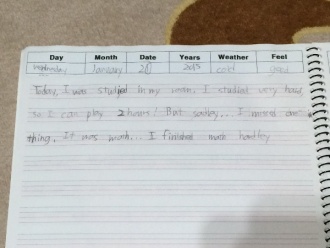 Day Month Date Years Weather Feel
wednesday January 20 2015 cold
Today, I was studied in my room. I studied very hard,
so I can play 2 hours! But sadley... I missed one
thing. It was math... I finished math hardley